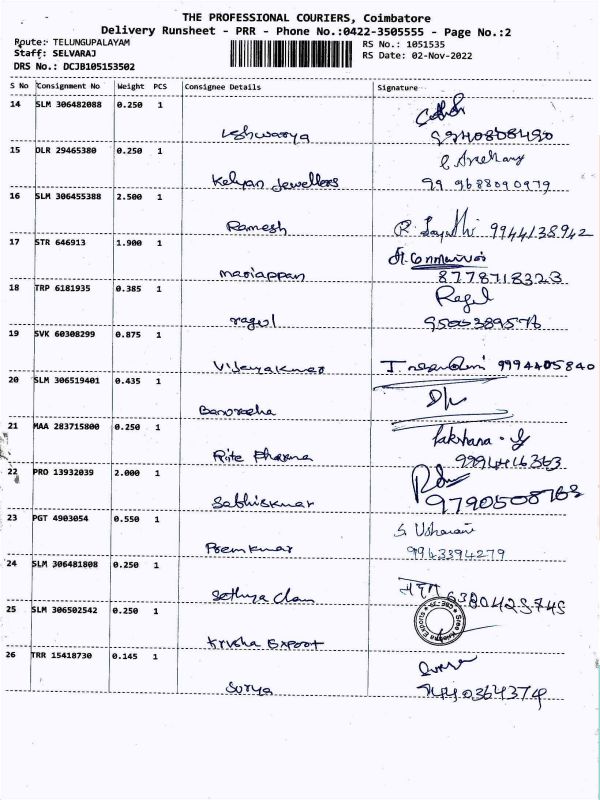 THE PROFESSIONAL COURIERS, Coimbatore
Delivery Runsheet - PRR - Phone No.:0422-3505555 - Page No.:2
Route:- TELUNGUPALAYAM
Staff: SELVARAJ
DRS No.: DCJB105153502
RS No.: 1051535
RS Date: 02-Nov-2022
S No Consignment No Weight PCS Consignee Details Signature
14 SLM 306482088 0.250 1
Eshwarya
15 DLR 29465380 0.250 1
Kalyan Jewellers 9688090979
16 SLM 306455388 2.500 1
Ramesh 9944138942
17 STR 646913 1.900 1
mariappan 8778718323
18 TRP 6181935 0.385 1 Ragul
ragul
19 SVK 60308299 0.875 1
Vijayakumar 9994405840
20 SLM 306519401 0.435 1
21 MAA 283715800 0.250 1
Rite Pharma
22 PRO 13932039 2.000 1
Sabhiskumar
23 PGT 4903054 0.550 1
Premkumar 9943394279
24 SLM 306481808 0.250 1
25 SLM 306502542 0.250 1
Krisha Export
26 TRR 15418730 0.145 1
Surya